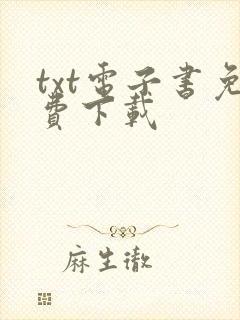 txt電子書免
費下載
麻生徹